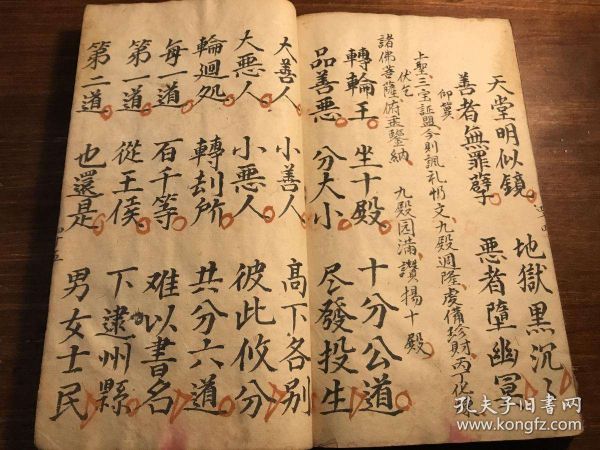 天堂明似鏡 地獄黑沉〻
善者無罪孽 惡者墮幽冥
仰箕
上聖三宝証盟今則諷礼忏文九殿週隆虔備珍財丙丁化
伏乞
諸佛菩薩俯垂鑒納 九殿园滿讚揚十殿
轉輪王 坐十殿 十分公道
品善惡 分大小 尽發投生
大善人 小善人 高下各别
大惡人 小惡人 彼此攸分
輪迴処 轉刦所 共分六道
每一道 百千等 难以書名
第一道 從王侯 下逮州縣
第二道 也還是 男女士民
孔夫子旧書网
www.kongfz.com